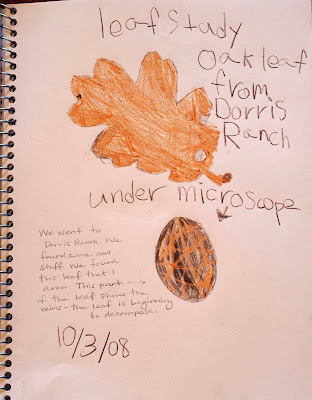 leaf study
oak leaf
from
Dorris
Ranch
under microscope
We went to
Dorris Ranch. We
found some cool
stuff. We found
this leaf that I
drew. This part →
of the leaf shows the
veins - the leaf is beginning
to decompose.
10/3/08